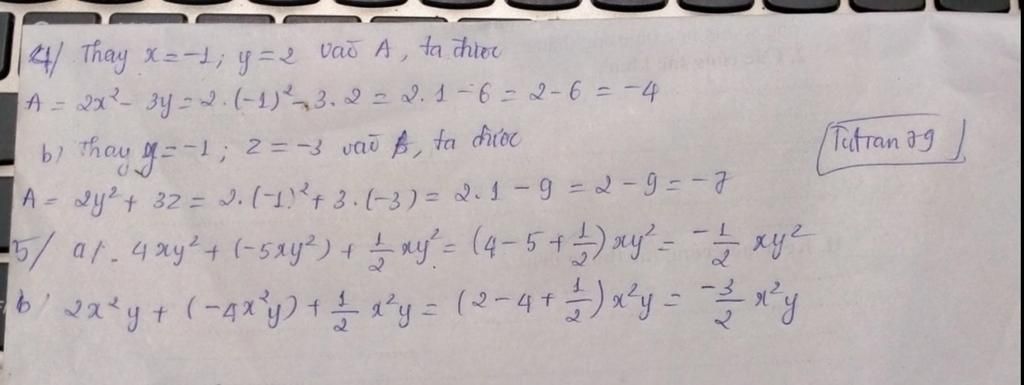 4/ Thay x=-1; y=2 vaò A, ta được
A = 2x² - 3y = 2.(-1)² - 3.2 = 2.1 - 6 = 2-6 = -4
b) Thay y=-1; z=-3 vaò B, ta được
Tutran 79
A = 2y² + 3z = 2.(-1)² + 3.(-3) = 2.1 - 9 = 2-9 = -7
5/ a/. 4xy² + (-5xy²) + 1/2 xy² = (4-5+1/2)xy² = -1/2 xy²
b/ 2x²y + (-4x²y) + 1/2 x²y = (2-4+1/2)x²y = -3/2 x²y